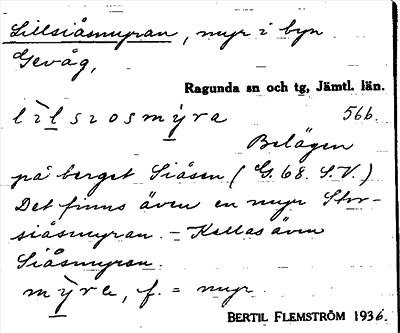 Lillsiåsmyran, myr i byn
Gevåg,
Ragunda sn och tg, Jämtl. län.
lìlsıosmỳra 566.
Belägen
på berget Siåsen (G. 68. S.V.)
Det finns även en myr Stor-
siåsmyran. – Kallas även
Siåsmyran.
mỳra, f. = myr.
BERTIL FLEMSTRÖM 1936.